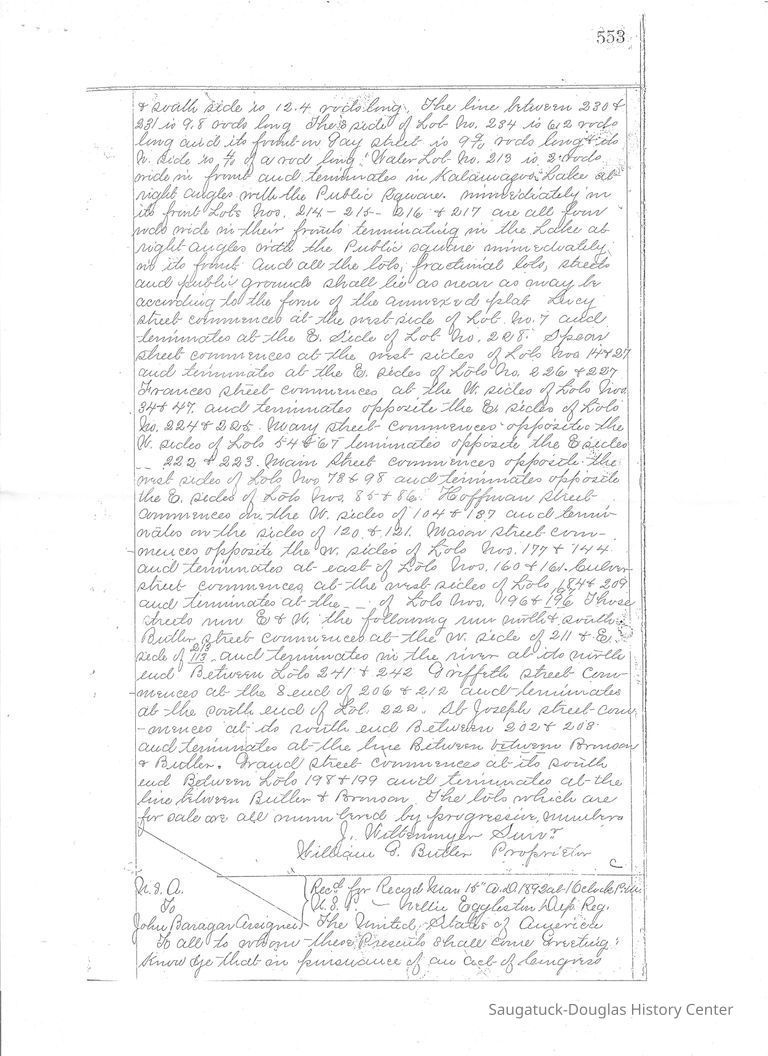 553
& south side is 12.4 rods long. The line between 230 &
231 is 9.8 rods long The S side of Lot No. 234 is 612 rods
long and its front on Gay street is 9 rods long & its
N. side is 4/10 of a rod long. Water Lot No. 213 is 2 rods
wide in front and terminates in Kalamazoo Lake at
right angles with the Public Square. immediately in
its front Lots Nos. 214 - 215 - 216 & 217 are all four
rods wide in their fronts terminating in the Lake at
right angles with the Public square immediately
in its front. And all the lots, fractional lots, streets
and public grounds shall lie as near as may be
according to the form of the annexed plat Lucy
street commences at the west side of Lot No. 7 and
terminates at the E. Side of Lot No. 228. Spear
street commences at the west sides of Lots Nos 14 & 27
and terminates at the E. sides of Lots No. 226 & 227
Frances street commences at the W. sides of Lots Nos.
34 & 47. and terminates opposite the E. sides of Lots
No. 224 & 225. Mary street commences opposite the
W. sides of Lots 54 & 67 terminates opposite the E sides
_ _ 222 & 223. Main Street commences opposite the
west sides of Lots Nos 78 & 98 and terminates opposite
the E. sides of Lots Nos. 85 & 86. Hoffman street
commences on the W. sides of 104 & 137 and termi-
nates on the sides of 120. & 121. Mason street com-
mences opposite the W. sides of Lots Nos. 177 & 144
and terminates at east of Lots Nos. 160 & 161. Culver
street commences at the west sides of Lots 184 & 209
and terminates at the _ _ of Lots Nos. 196 & 196 These
streets run E & W. the following run north & south
Butler street commences at the W. side of 211 & E.
side of 213 113. and terminates in the river at its north
end Between Lots 241 & 242 Griffeth street com-
mences at the S end of 206 & 212 and terminates
at the south end of Lot 222. St Joseph street com
-mences at its south end Between 202 & 203
and terminates at the line Between between Bronson
& Butler. Grand street commences at its south
end Between Lots 198 & 199 and terminates at the
line between Butler & Bronson. The lots which are
for sale are all numbered by progressive numbers
J. Wittenmyer Survr
William G. Butler Proprietor
U. S. A. Recd for Record Mar 15th A.D. 1892 at 1 Oclock P.M.
To U. S. P. — Nellie Eggleston Dep Reg.
John Baragar Assignee The United States of America
To all to whom these Presents shall come Greeting:
Know Ye that in pursuance of an act of Congress
Saugatuck-Douglas History Center